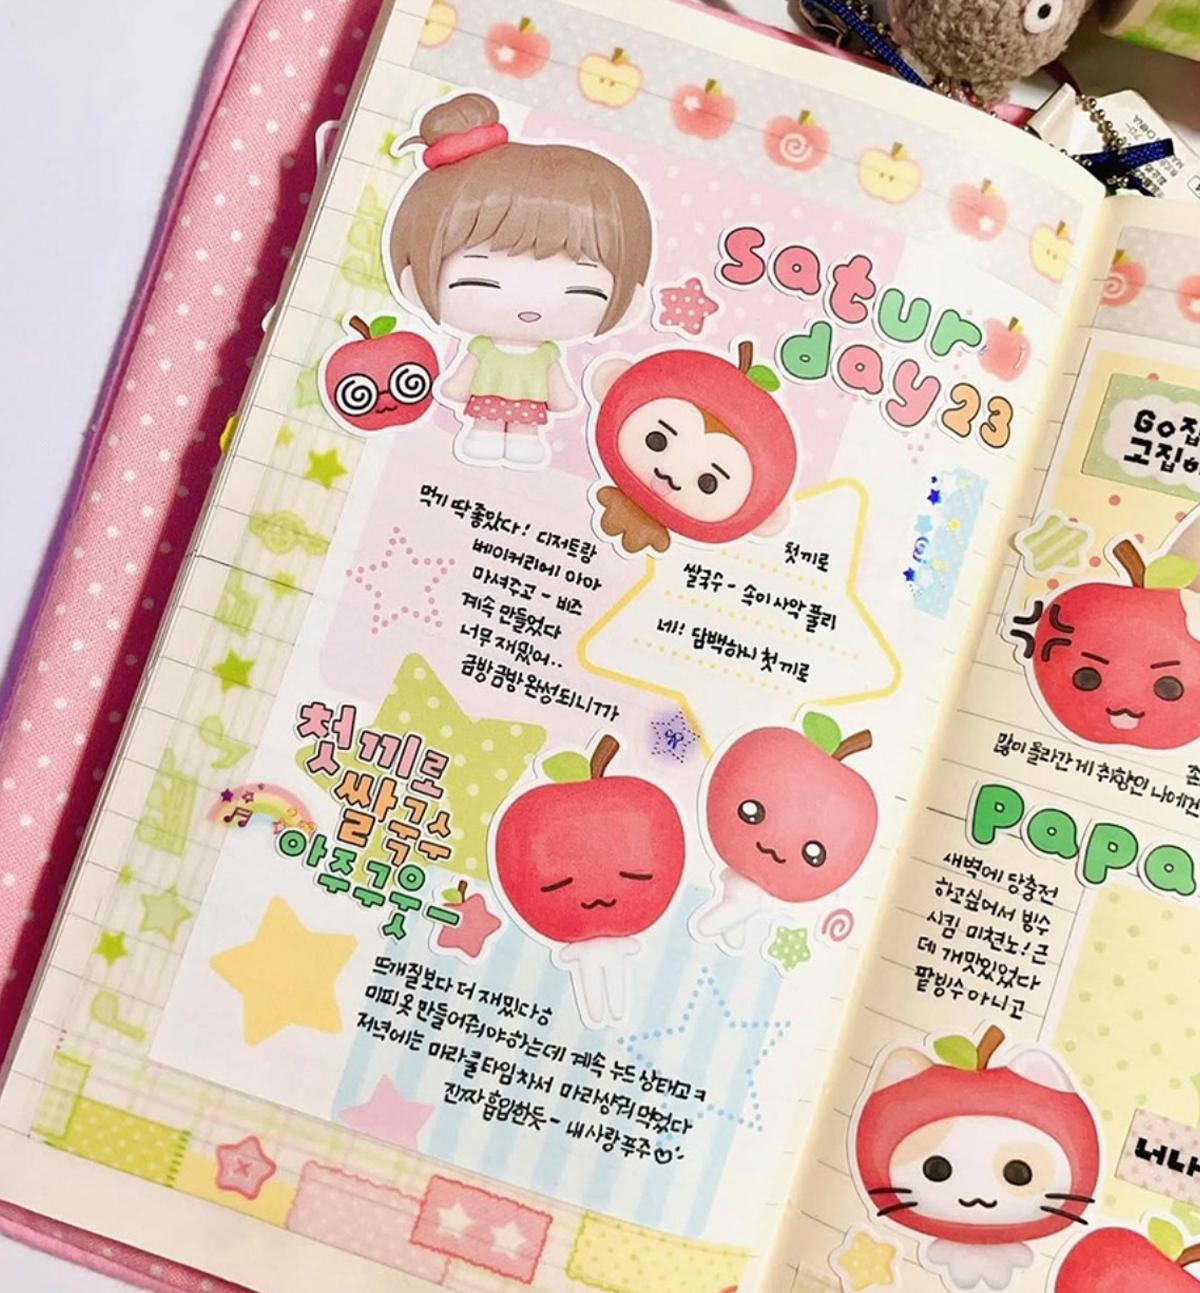 satur
day 23
첫끼로
쌀국수 - 속이 사악 풀리
네! 담백하니 첫끼로
먹기 딱 좋았다! 디저트랑
베이커리에 아아
마셔주고 - 비즈
계속 만들었다
너무 재밌어..
금방금방 완성되니까
첫끼로
쌀국수
아주굿 -
뜨개질보다 더 재밌다ㅎ
미피 옷 만들어줘야 하는데 계속 누드 상태고ㅋ
저녁에는 마라쿨타임 차서 마라샹궈 먹었다
진짜 흡입한듯 - 내 사랑 푸주
Go집
고집
많이 올라간 게 취향인 나에겐
papa
새벽에 당충전
하고싶어서 빙수
시킴 미쳤노! 근
데 개맛있었다
팥빙수 아니고
너나